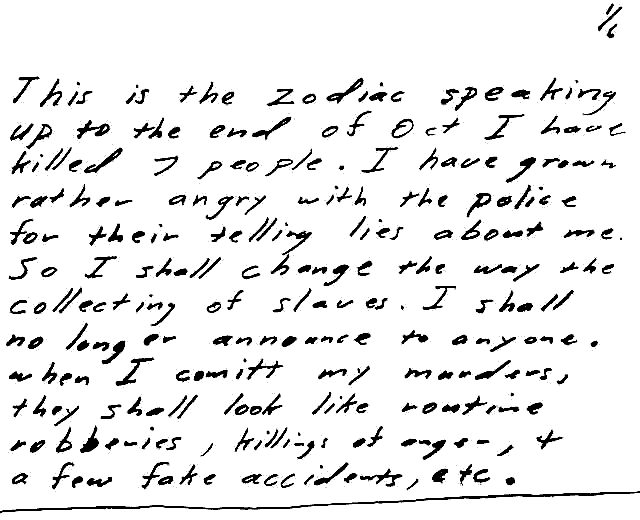 1/6
This is the zodiac speaking
up to the end of Oct I have
killed 7 people. I have grown
rather angry with the police
for their telling lies about me.
So I shall change the way the
collecting of slaves. I shall
no longer announce to anyone.
when I comitt my murders,
they shall look like routine
robberies, killings of anger, +
a few fake accidents, etc.